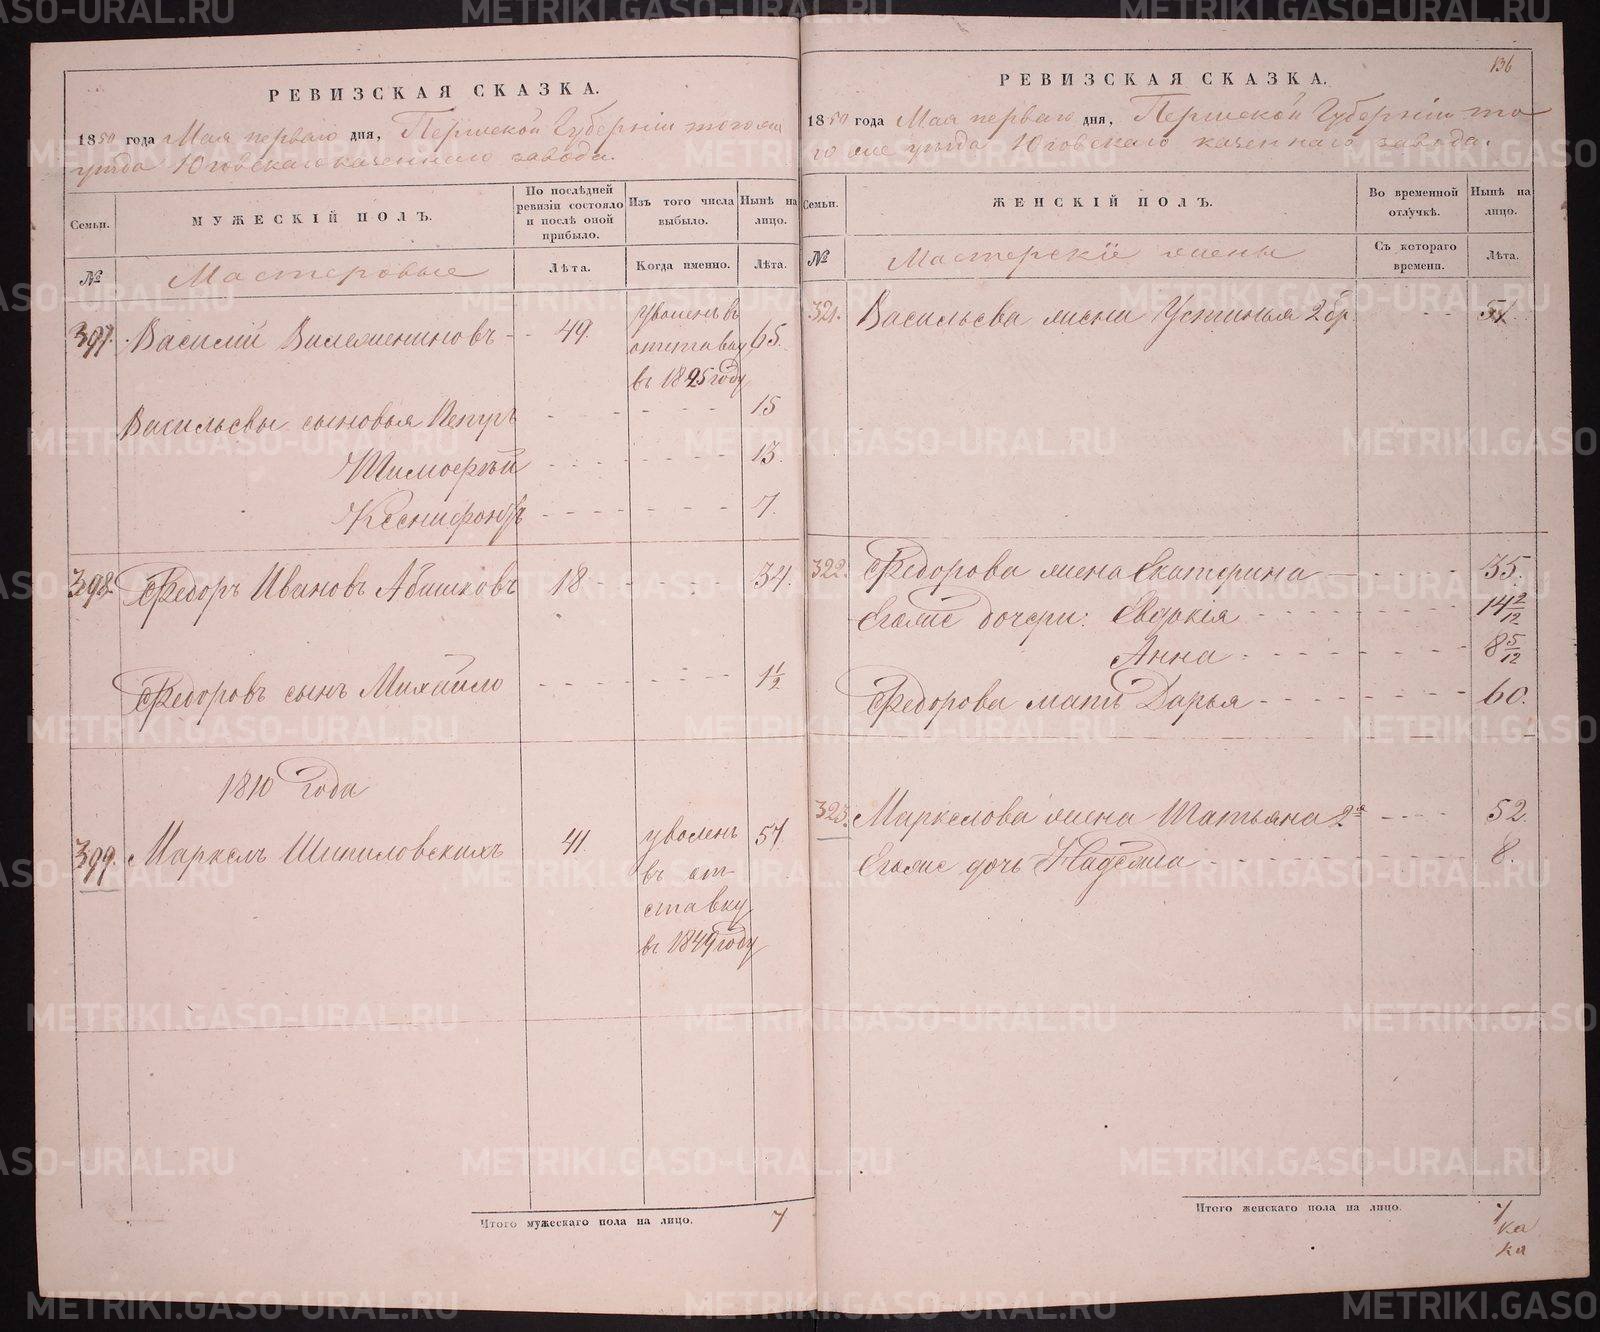 РЕВИЗСКАЯ СКАЗКА.
1850 года Мая перваго дня, Пермской Губернiи тогоже
уѣзда Юговскаго казеннаго завода.
Семьи.
МУЖЕСКIЙ ПОЛЪ.
По послѣдней ревизiи состояло и послѣ оной прибыло.
Изъ того числа выбыло.
Нынѣ на лицо.
№
Мастеровые
Лѣта.
Когда именно.
Лѣта.
397. Василiй - 49. уволенъ в отставку в 1845 году 65.
Васильевы сыновья Петръ 15
Тимофей 13.
Ксенифонтъ 7.
398. Федоръ Ивановъ 18 34.
Федоровъ сынъ Михайло 1 1/2
1810 года
399. Маркелъ Шипиловскихъ 41. уволенъ въ отставку въ 1849 году 57.
Итого мужескаго пола на лицо. 7
136
РЕВИЗСКАЯ СКАЗКА.
1850 года Мая перваго дня, Пермской Губернiи то
го же уѣзда Юговскаго казеннаго завода.
Семьи.
ЖЕНСКIЙ ПОЛЪ.
Во временной отлучкѣ.
Нынѣ на лицо.
№
Мастерскiе жены
Съ котораго времени.
Лѣта.
321. Васильева жена Устинья 2 бр.
322. Федорова жена Екатерина 35.
Егоже дочери: Евдокiя 14 2/12
Анна 8 5/12
Федорова мать Дарья 60.
323. Маркелова жена Татьяна 2я 52.
Егоже дочь 8.
Итого женскаго пола на лицо. 7
METRIKI.GASO-URAL.RU